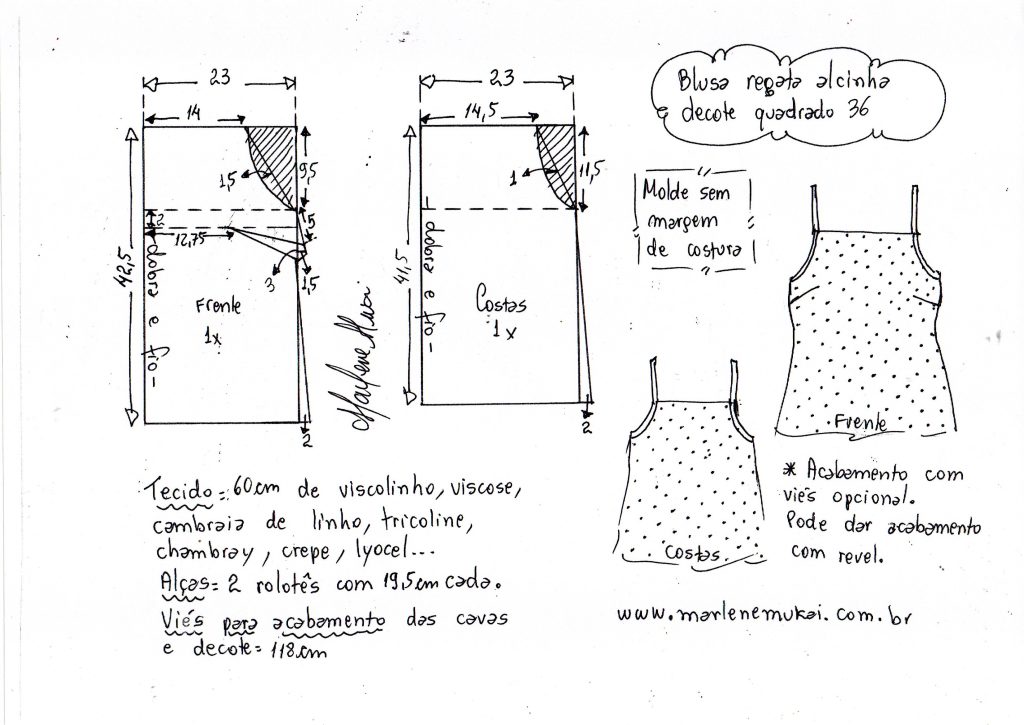 Blusa regata alcinha
e decote quadrado 36
Molde sem
margem
de costura
23
14
1,5
9,5
2
12,75
5
3
1,5
42,5
dobra e fio
Frente
1x
2
Marlene Mukai
23
14,5
1
11,5
41,5
dobra e fio
Costas
1x
2
Frente
Costas
Tecido = 60cm de viscolinho, viscose,
cambraia de linho, tricoline,
chambray, crepe, lyocel...
Alças = 2 rolotês com 19,5cm cada.
Viés para acabamento das cavas
e decote = 118cm
* Acabamento com
viés opcional.
Pode dar acabamento
com revel.
www.marlenemukai.com.br